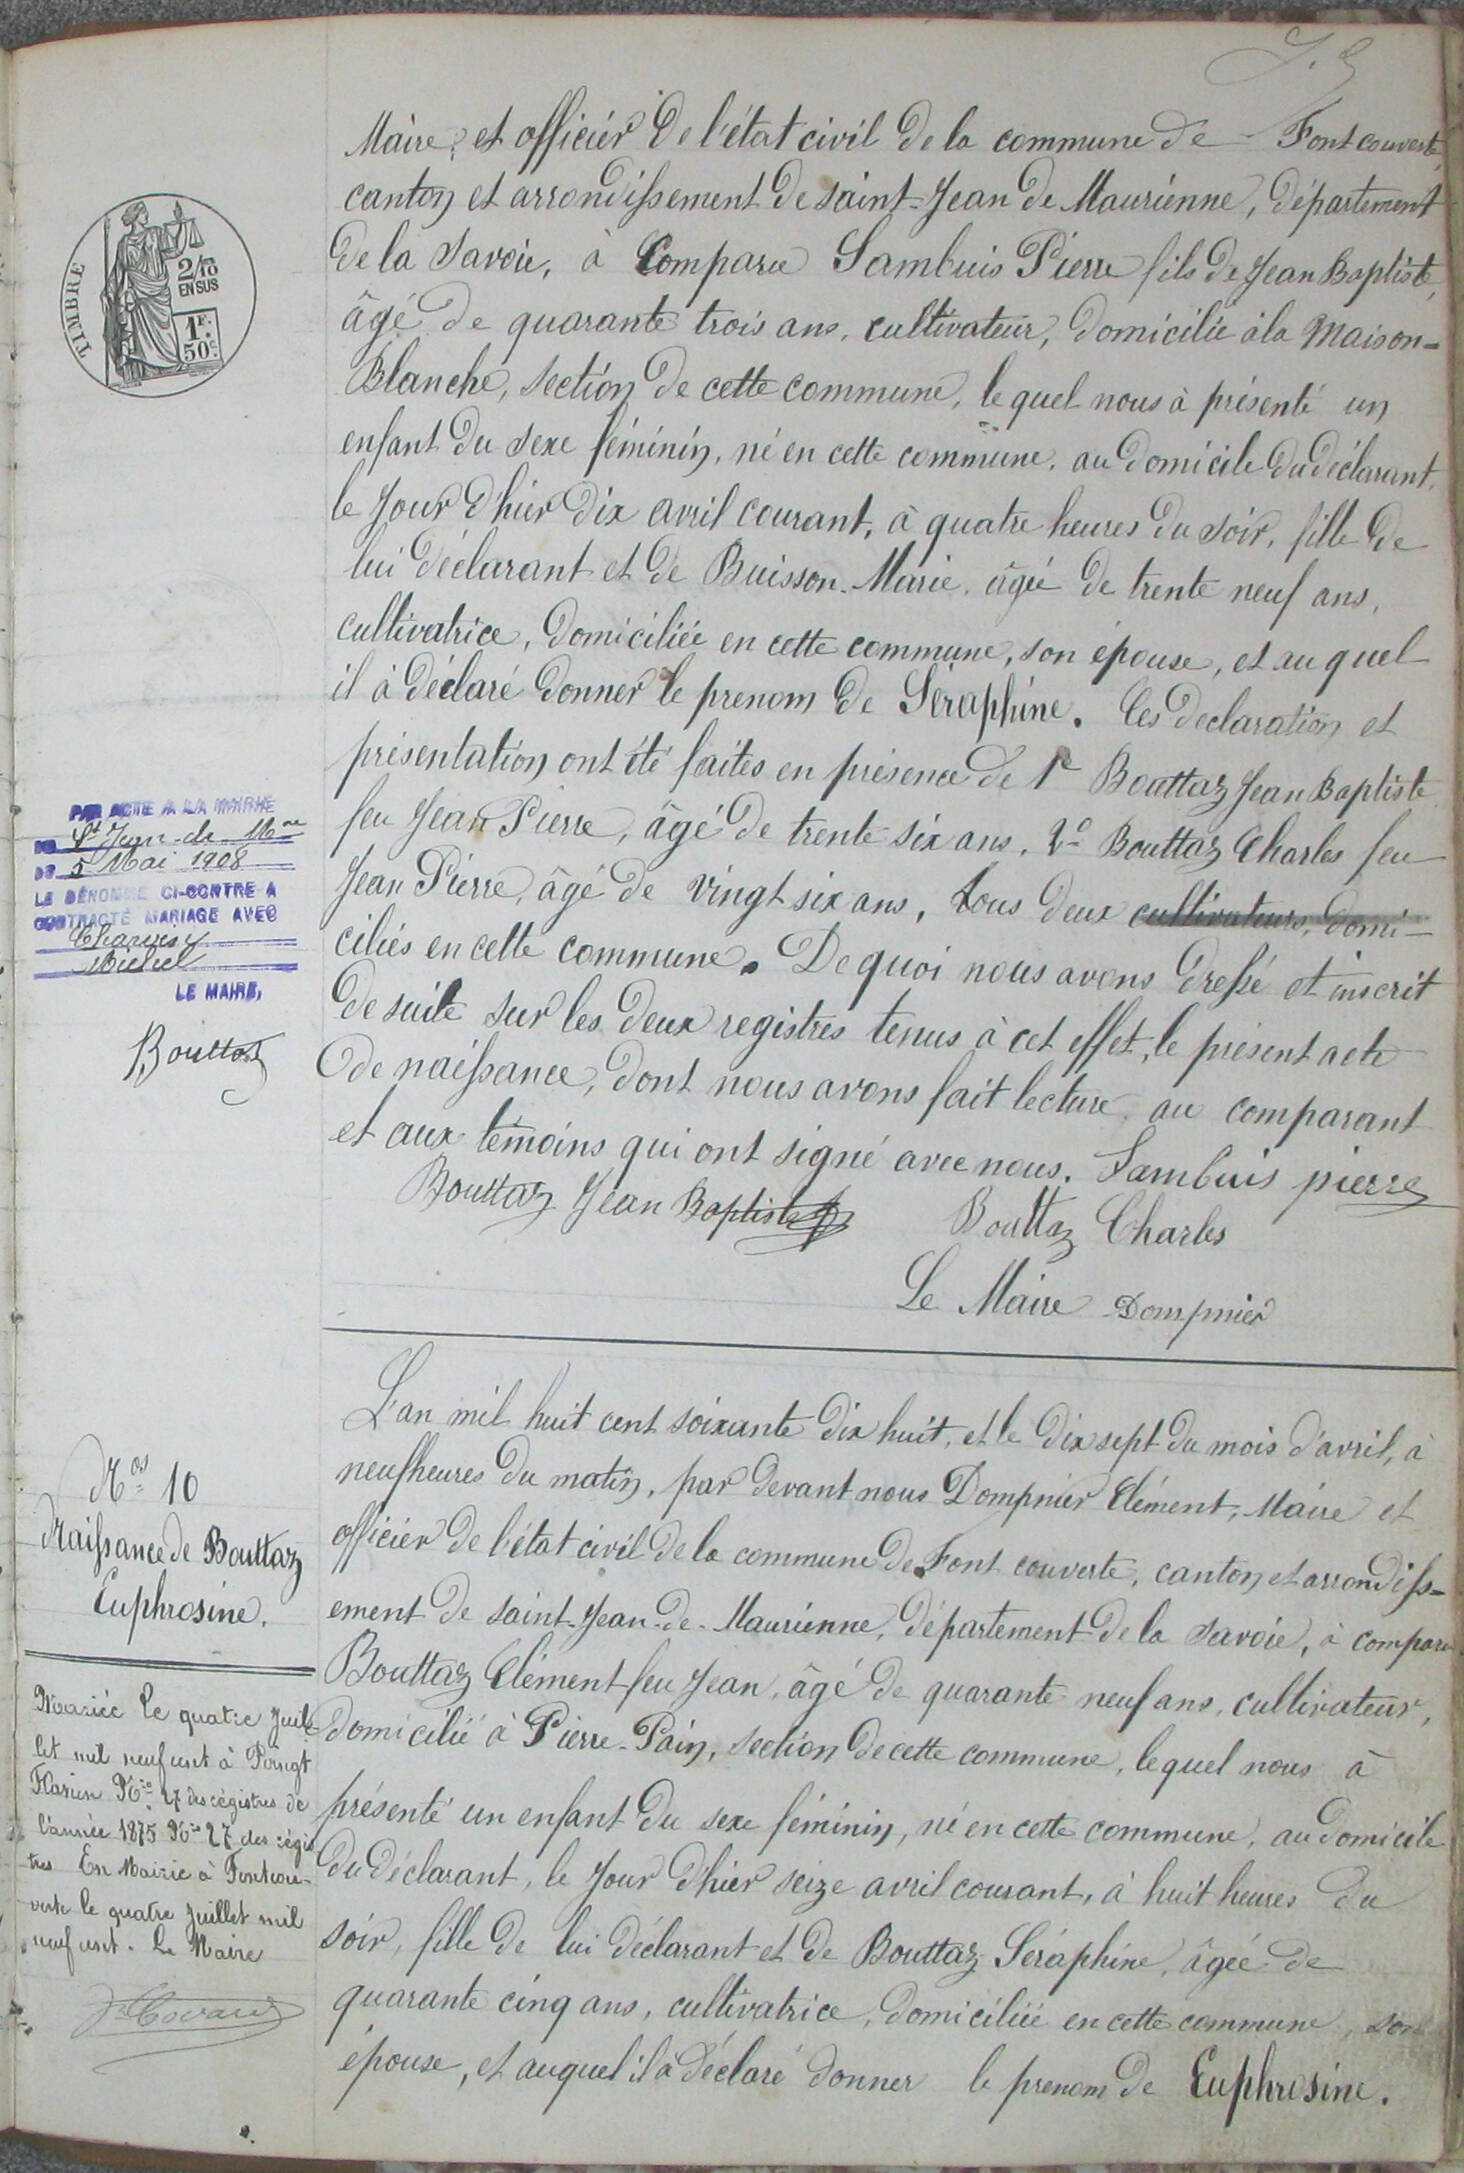 Maire, et officier de l'état civil de la commune de Fontcouverte,
canton et arrondissement de saint-Jean de Maurienne, département
de la Savoie, à Comparu Sambuis Pierre fils de Jean Baptiste,
âgé de quarante trois ans, cultivateur, domicilié à la Maison-
Blanche, section de cette commune, le quel nous à présenté un
enfant du sexe féminin, né en cette commune, au domicile du déclarant,
le Jour d'hier dix avril courant, à quatre heures du soir, fille de
lui déclarant et de Buisson Marie, âgée de trente neuf ans,
cultivatrice, domiciliée en cette commune, son épouse, et au quel
il à déclaré donner le prenom de Séraphine. Ces declaration et
présentation ont été faites en présence de 1º Bouttaz Jean Baptiste
feu Jean Pierre, âgé de trente six ans, 2º Bouttaz Charles feu
Jean Pierre, âgé de vingt six ans, tous deux cultivateurs, domi-
ciliés en cette commune. De quoi nous avons dressé et inscrit
de suite sur les deux registres tenus à cet effet, le présent acte
de naissance, dont nous avons fait lecture au comparant
et aux témoins qui ont signé avec nous. Sambuis pierre
Bouttaz Jean Baptiste Bouttaz Charles
Le Maire Dompnier
TIMBRE
2/10
EN SUS
1F.
50c.
PAR ACTE A LA MAIRIE
DE St Jean-de-Mne
DU 5 Mai 1908
LE DÉNOMMÉ CI-CONTRE A
CONTRACTÉ MARIAGE AVEC
Michel
LE MAIRE,
Bouttaz
L'an mil huit cent soixante dix huit, et le dix sept du mois d'avril, à
neuf heures du matin, par devant nous Dompnier Clément, Maire et
officier de l'état civil de la commune de Font couverte, canton et arrondiss-
ement de saint-Jean-de-Maurienne, département de la Savoie, à comparu
Bouttaz Clément feu Jean, âgé de quarante neuf ans, cultivateur,
domicilié à Pierre-Pain, section de cette commune, le quel nous à
présenté un enfant du sexe féminin, né en cette commune, au domicile
du déclarant, le Jour d'hier seize avril courant, à huit heures du
soir, fille de lui déclarant et de Bouttaz Séraphine, âgée de
quarante cinq ans, cultivatrice, domiciliée en cette commune, son
épouse, et auquel il à déclaré donner le prenom de Euphrosine.
Nos 10
Naissance de Bouttaz
Euphrosine.
Mariée le quatre Juil-
let mil neuf cent à
No 27 des régistres de
l'année 1875 No 27 des régis
tres En Mairie à Fontcou-
verte le quatre Juillet mil
neuf cent. Le Maire